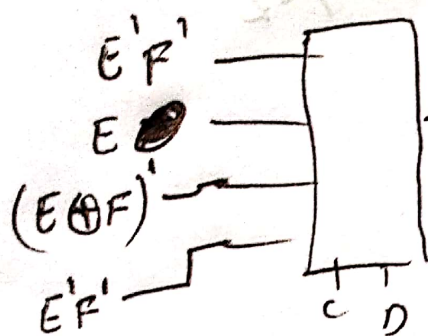 E'F'
E
(E⊕F)'
E'F'
C D